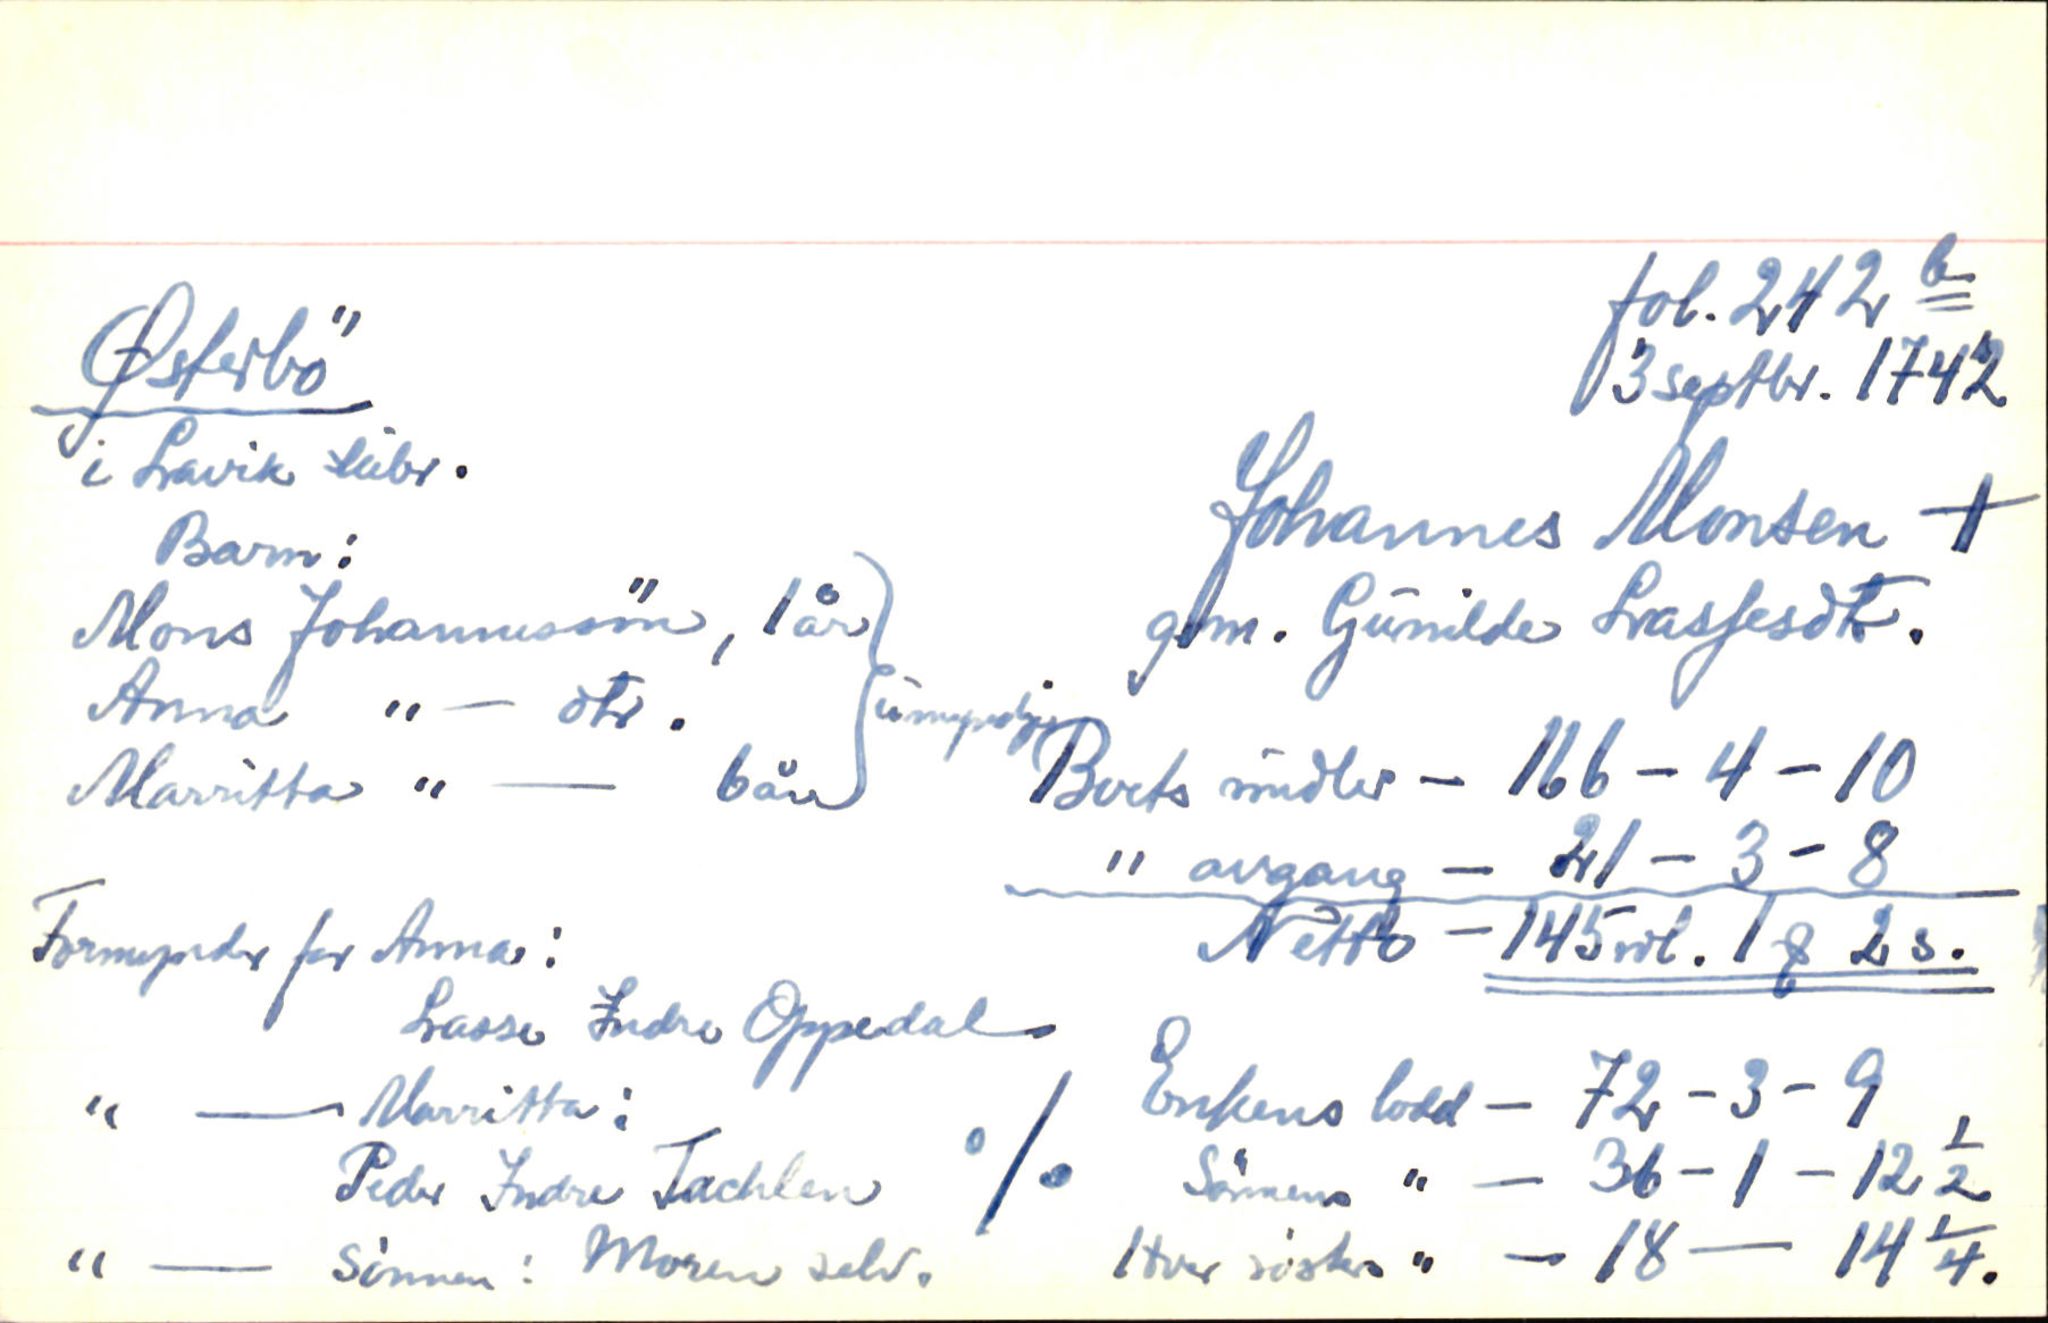 fol. 242 b
3 septbr. 1742
Østerbö
i Lavik skibr.
Johannes Monsen +
gm. Gunilde Lassesdtr.
Barn:
Mons Johannessön, 1 år
Anna " — dtr.
Marritta " — 6 år
umyndige
Boets midler — 166 - 4 - 10
" avgang — 21 - 3 - 8
Netto — 145 rdl. 1 ƒ 2 s.
Formynder for Anna:
Lasse Indre Oppedal
" — Marritta:
Peder Indre Tachlen
" — sönnen: Moren selv.
%
Enkens lodd — 72 - 3 - 9
Sönnens " — 36 - 1 - 12 1/2
Hver sösters " — 18 — 14 1/4.